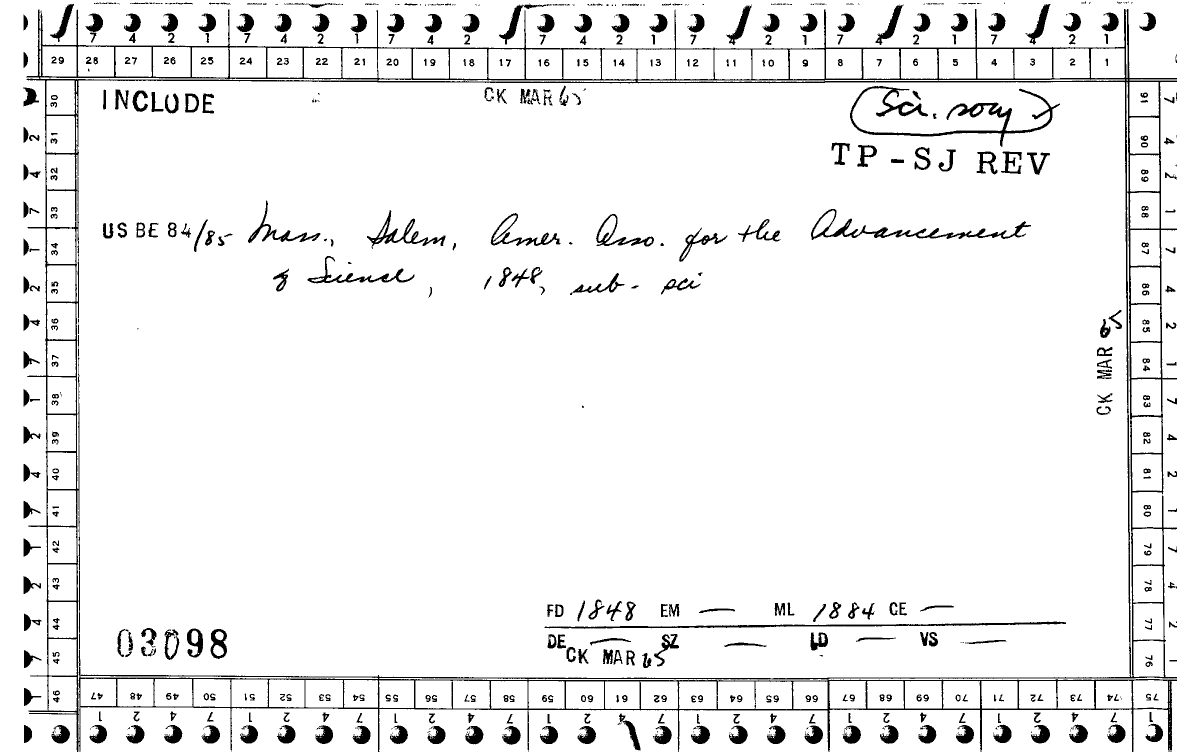 7 4 2 1 7 4 2 1 7 4 2 1 7 4 2 1 7 4 2 1 7 4 2 1 7 4 2 1
29 28 27 26 25 24 23 22 21 20 19 18 17 16 15 14 13 12 11 10 9 8 7 6 5 4 3 2 1
INCLUDE CK MAR 65 Sci. socy
TP-SJ REV
US BE 84/85 Mass., Salem, Amer. Asso. for the Advancement
of Science, 1848, sub-sci
CK MAR 65
FD 1848 EM — ML 1884 CE —
DE — SZ — LD — VS —
CK MAR 65
03098
30 31 32 33 34 35 36 37 38 39 40 41 42 43 44 45 46
1 2 4 7 1 2 4 7 1 2 4 7 1 2 4 7
91 90 89 88 87 86 85 84 83 82 81 80 79 78 77 76
7 4 2 1 7 4 2 1 7 4 2 1 7 4 2 1
47 48 49 50 51 52 53 54 55 56 57 58 59 60 61 62 63 64 65 66 67 68 69 70 71 72 73 74 75
1 2 4 7 1 2 4 7 1 2 4 7 1 2 4 7 1 2 4 7 1 2 4 7 1 2 4 7 1